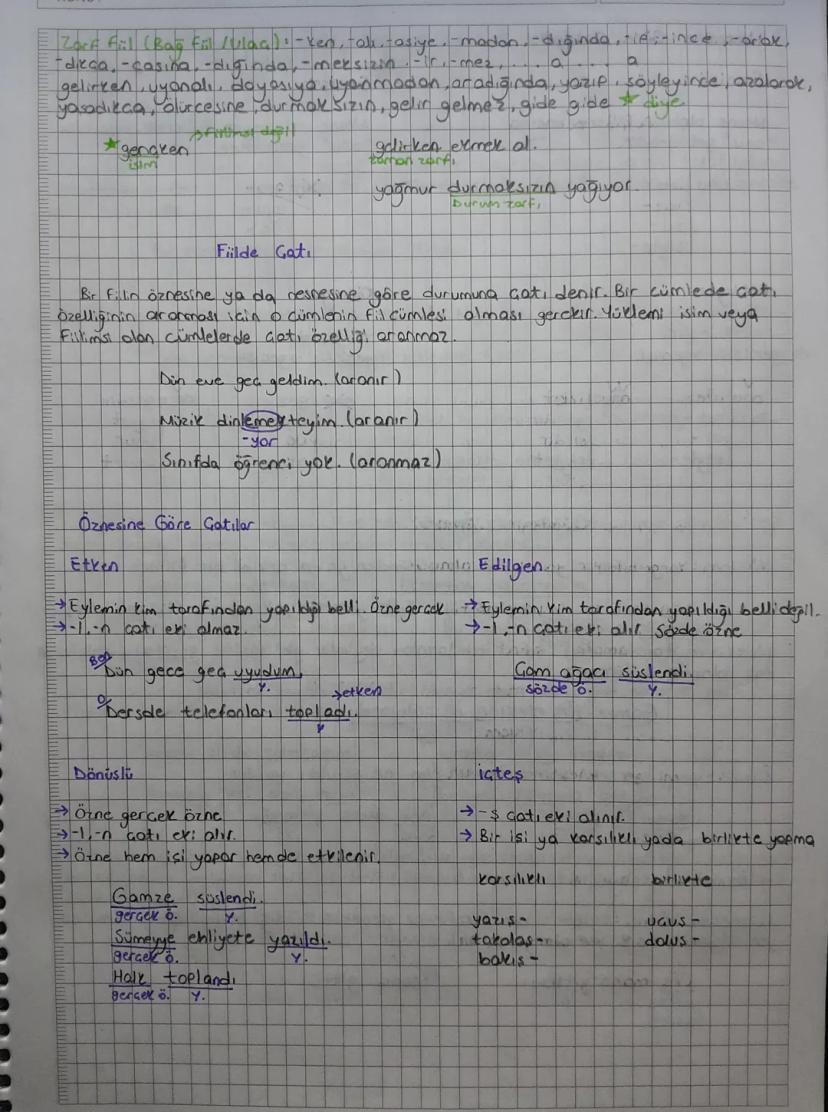 Zarf Fiil (Bağ Fiil /Ulaç): -ken, -alı, -asiye, -madan, -dığında, -ip, -ince, -arak,
-dıkça, -casına, -dığında, -meksizin, -ir, -mez, ...a ...a
gelirken, uyanalı, doyasıya, uyanmadan, aradığında, yazıp, söyleyince, azalarak,
yaşadıkça, ölürcesine, durmaksızın, gelir gelmez, gide gide ★ diye
→ fiilimsi değil
★ gençken gelirken ekmek al.
isim zaman zarfı
yağmur durmaksızın yağıyor.
Durum zarfı
Fiilde Çatı
Bir fiilin öznesine ya da nesnesine göre durumuna çatı denir. Bir cümlede çatı
özelliğinin aranması için o cümlenin fiil cümlesi olması gerekir. Yüklemi isim veya
Fiilimsi olan cümlelerde çatı özelliği aranmaz.
Dün eve geç geldim. (aranır)
Müzik dinlemekteyim. (aranır)
-yor
Sınıfda öğrenci yok. (aranmaz)
Öznesine Göre Çatılar
Etken Edilgen
→ Eylemin kim tarafından yapıldığı belli. Özne gerçek → Eylemin kim tarafından yapıldığı belli değil.
→ -l, -n çatı eki almaz. → -l, -n çatı eki alır sözde özne
Ben
Dün gece geç uyudum. Çam ağacı süslendi.
Y. sözde ö. Y.
→ etken
O
Dersde telefonları topladı.
Y
Dönüşlü İşteş
→ Özne gerçek özne → -ş çatı eki alınır.
→ -l, -n çatı eki alır. → Bir işi ya karşılıklı yada birlikte yapma
→ Özne hem işi yapar hemde etkilenir.
karşılıklı birlikte
Gamze süslendi.
gerçek ö. Y. yazış- uçuş-
Sümeyye ehliyete yazıldı. tokalaş- doluş-
gerçek ö. Y. bakış-
Halk toplandı
gerçek ö. Y.